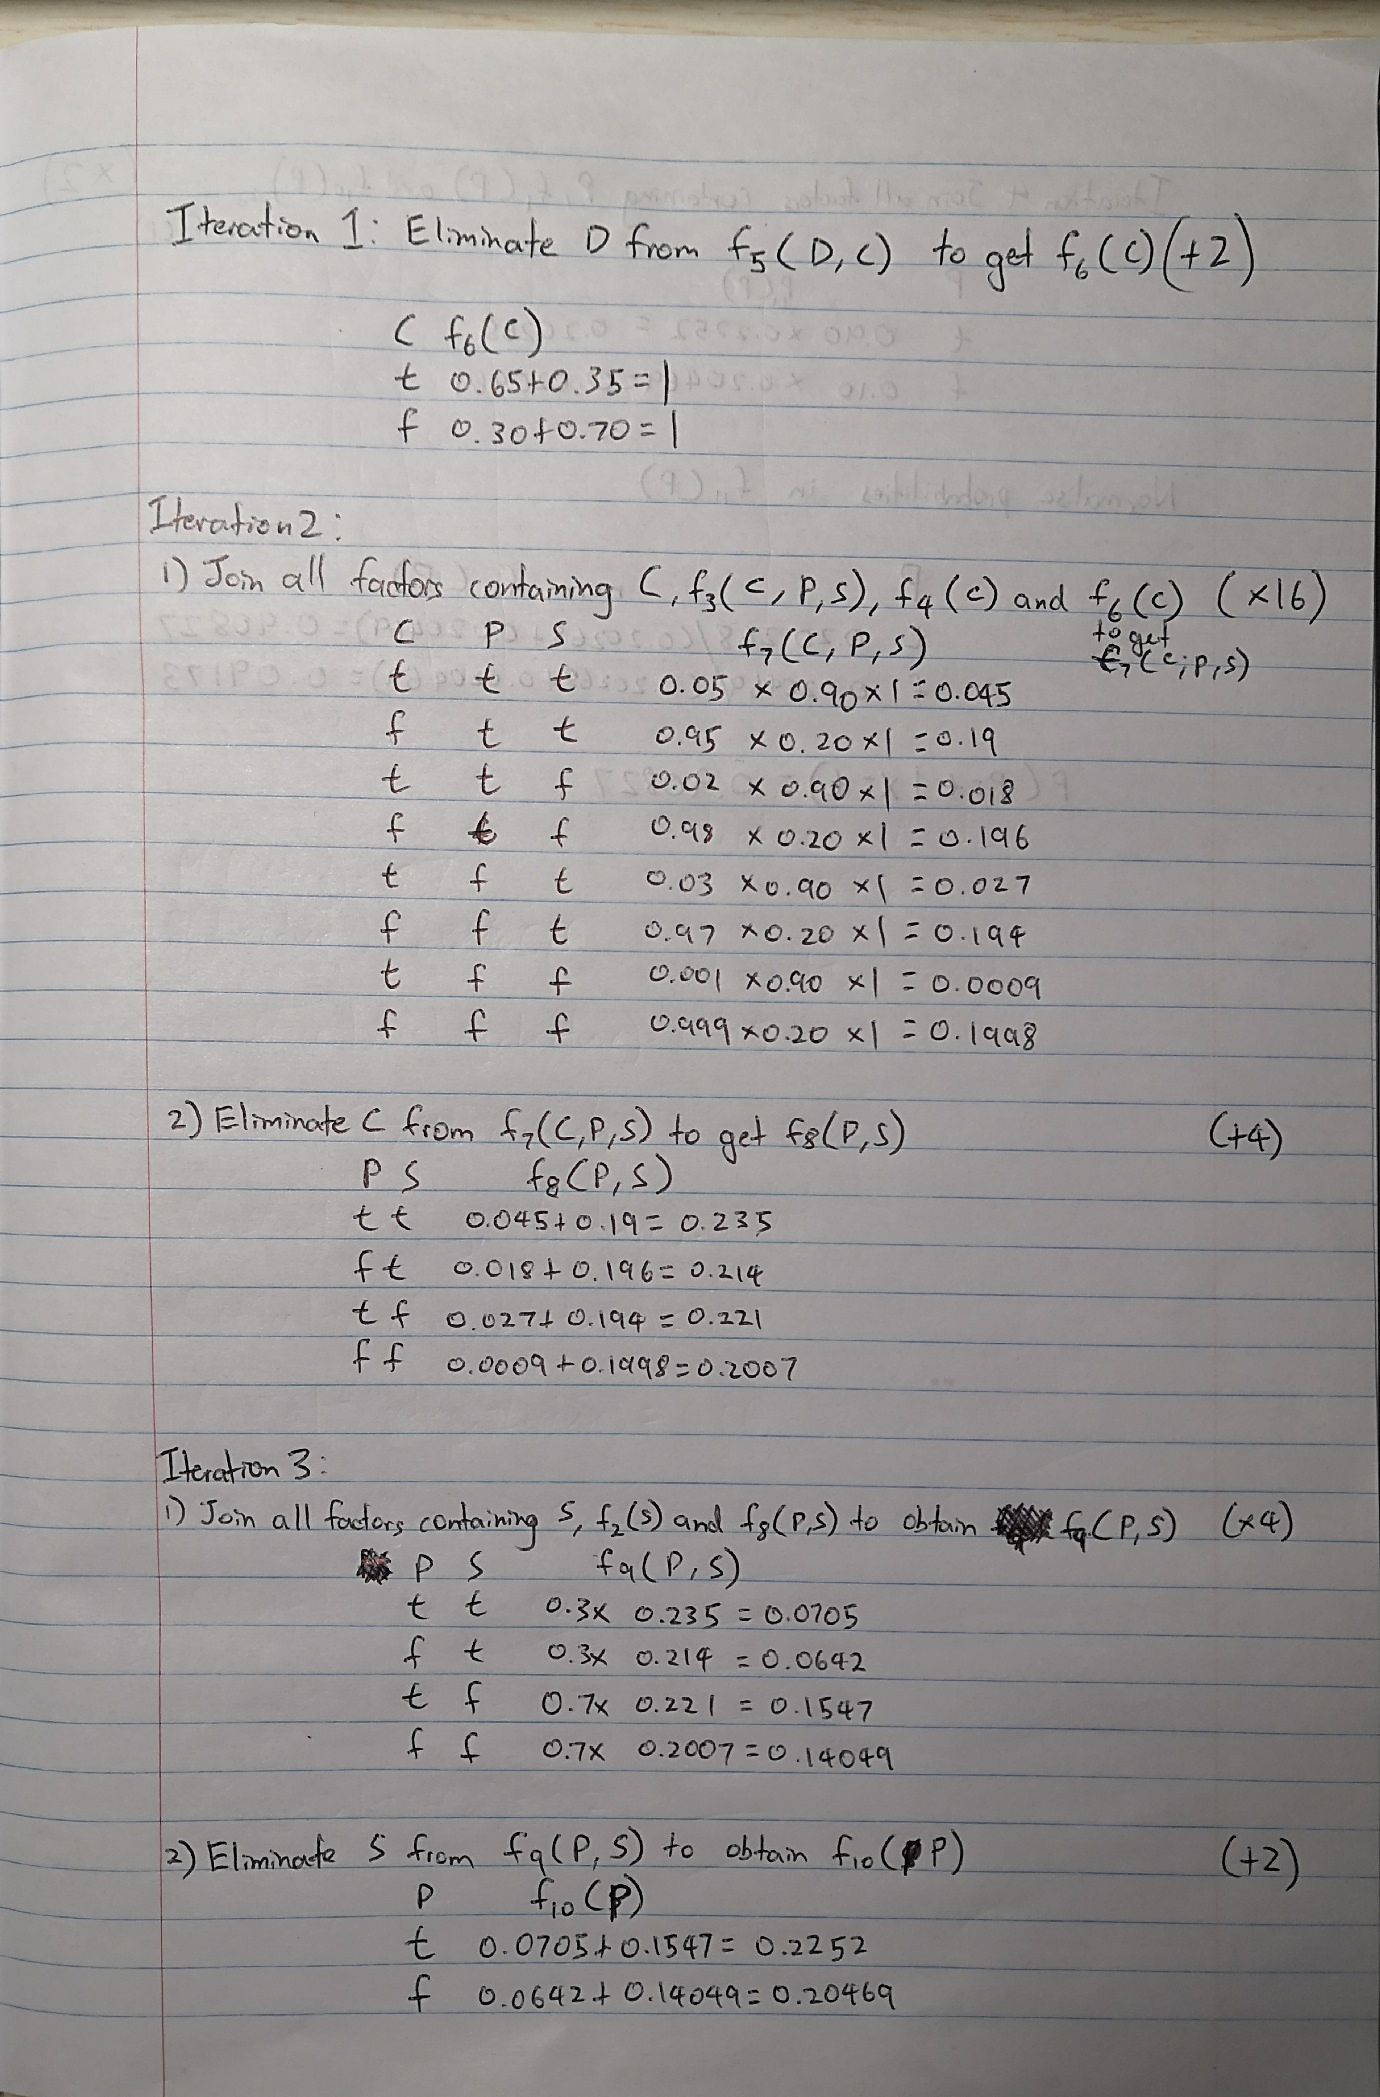 Iteration 1: Eliminate D from f5(D,C) to get f6(C)(+2)
C f6(C)
t 0.65+0.35=1
f 0.30+0.70=1
Iteration 2:
1) Join all factors containing C, f3(C,P,S), f4(C) and f6(C) (×16)
to get
f7(C,P,S)
C P S f7(C,P,S)
t t t 0.05 × 0.90×1=0.045
f t t 0.95 ×0.20×1=0.19
t t f 0.02 × 0.90×1=0.018
f t f 0.98 ×0.20×1=0.196
t f t 0.03 ×0.90 ×1=0.027
f f t 0.97 ×0.20 ×1=0.194
t f f 0.001 ×0.90 ×1=0.0009
f f f 0.999×0.20 ×1=0.1998
2) Eliminate C from f7(C,P,S) to get f8(P,S) (+4)
P S f8(P,S)
t t 0.045+0.19=0.235
f t 0.018+0.196=0.214
t f 0.027+0.194=0.221
f f 0.0009+0.1998=0.2007
Iteration 3:
1) Join all factors containing S, f2(S) and f8(P,S) to obtain f9(P,S) (×4)
P S f9(P,S)
t t 0.3× 0.235=0.0705
f t 0.3× 0.214=0.0642
t f 0.7× 0.221=0.1547
f f 0.7× 0.2007=0.14049
2) Eliminate S from f9(P,S) to obtain f10(P) (+2)
P f10(P)
t 0.0705+0.1547=0.2252
f 0.0642+0.14049=0.20469